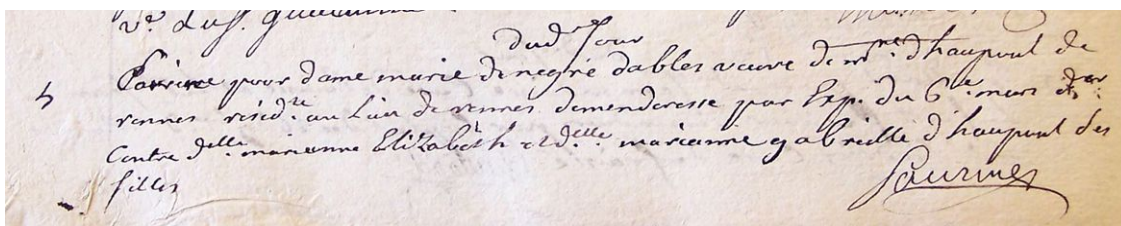 dud. Jour
5
pour dame marie de negré dables veuve de mre. dhaupoul de
rennes résidte. au Lieu de rennes demanderesse par Exp. du 6e. mars der.
Contre delle. marianne Elizabeth et delle. marianne gabrielle d'haupoul ses
filles